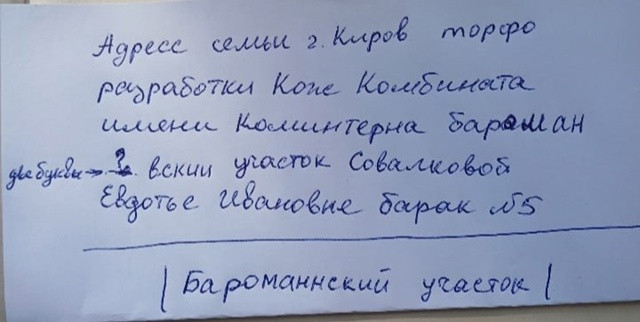 Адресс семьи г. Киров торфо
разработки Коже Комбината
имени Коминтерна бароман
две буквы → ?. вскии участок Совалковой
Евдотье Ивановне барак №5
Бароманнский участок